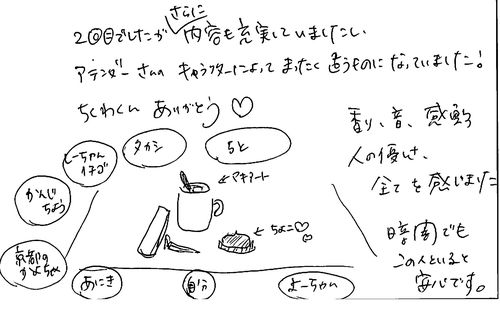 2回目でしたが さらに 内容も充実していましたし、
アテンダーさんのキャラクターによってまったく違うものになっていました!
ちくわくん ありがとう♡
香り、音、感動
人の優しさ、
全てを感じました
暗闇でも
この人といると
安心です。
しーちゃん
イチゴ
タカシ
ちと
かんじ
ちょう
京都の
かよちゃん
あにき
自分
よーちゃん
←マキアート
←ちょこ♡